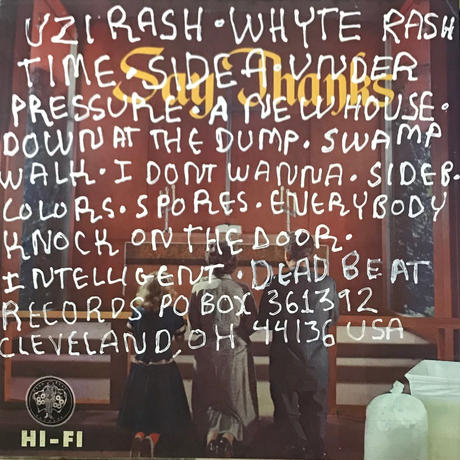 UZI RASH · WHYTE RASH
TIME · SIDE A · UNDER
Say Thanks
PRESSURE · A NEW HOUSE ·
DOWN AT THE DUMP · SWAMP
WALK · I DONT WANNA · SIDE B ·
COLORS · SPORES · ENERYBODY
KNOCK ON THE DOOR ·
INTELLIGENT · DEAD BEAT
RECORDS PO BOX 361392
CLEVELAND, OH 44136 USA
HI-FI